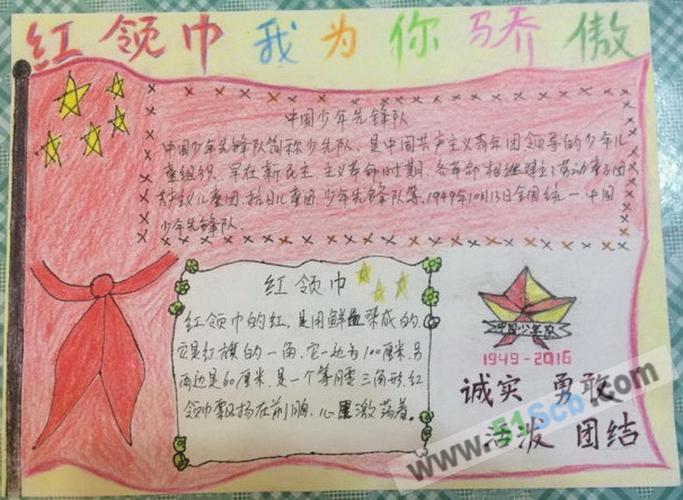 红领巾我为你骄傲
中国少年先锋队
中国少年先锋队简称少先队、是中国共产主义青年团领导的少年儿
童组织、早在新民主主义革命时期、各革命相继建立了劳动童子团
共产主义儿童团、抗日儿童团、少年先锋队等、1949年10月13日全国统一中国
少年先锋队.
红领巾
红领巾的红、是用鲜血染成的、
它是红旗的一角、它一边为100厘米、另
两边是60厘米、是一个等腰三角形、红
领巾飘扬在前胸、心里激荡着。
中国少年队
1949-2016
诚实 勇敢
活泼 团结
www.51Scb.com